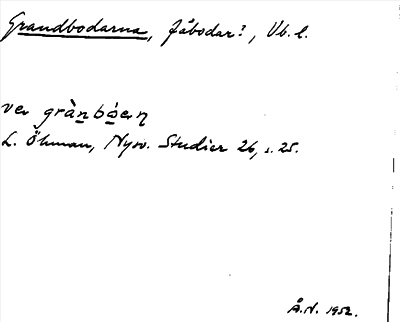 Grandbodarna, fäbodar?, Vb. l.
ver grànbǿeɳ
L. Öhman, Nysv. Studier 26, s. 25.
Å.N. 1952.